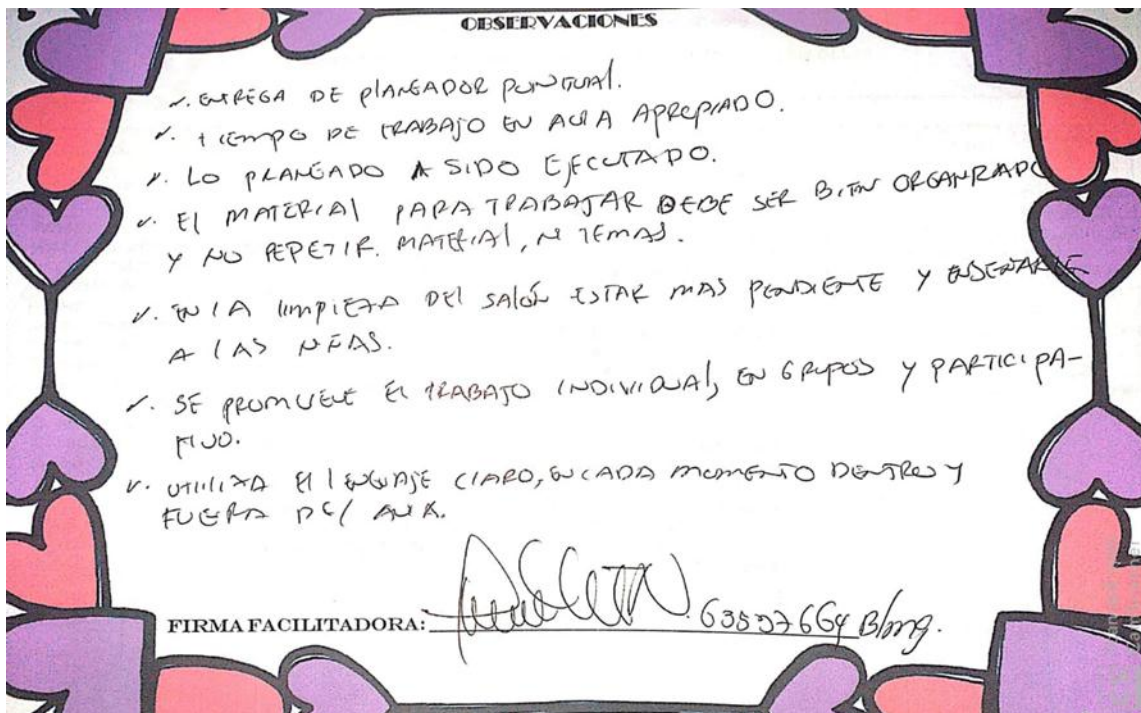 OBSERVACIONES
✓. ENTREGA DE PLANEADOR PUNTUAL.
✓. TIEMPO DE TRABAJO EN AULA APROPIADO.
✓. LO PLANEADO A SIDO EJECUTADO.
✓. El MATERIAl PARA TRABAJAR DEBE SER BIEN ORGANIZADO
Y NO REPETIR MATERIAl, NI TEMAS.
✓. EN lA lIMPIEZA DEl SAlÓN ESTAR MAS PENDIENTE Y ENSEÑARLE
A lAS NIÑAS.
✓. SE PROMUEVE El TRABAJO INDIVIDUAl, EN GRUPOS Y PARTICIPA-
TIVO.
✓. UTILIZA El lENGUAJE ClARO, EN CADA MOMENTO DENTRO Y
FUERA DEl AULA.
FIRMA FACILITADORA: Blmg.